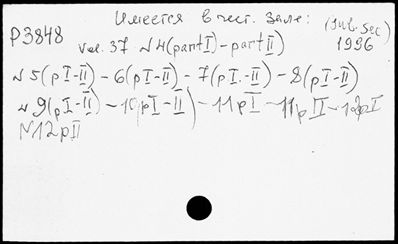 Имеется в чит. зале: (Sub. Sec)
P3848 vol. 37 N4 (part I) - part II) 1996
N5 (p I-II) - 6 (p I-II) - 7 (p I.-II) - 8 (p I-II)
N9 (p I-II) - 10 (p I-II) - 11 p I - 11 p II - 12 p I
N12 p II